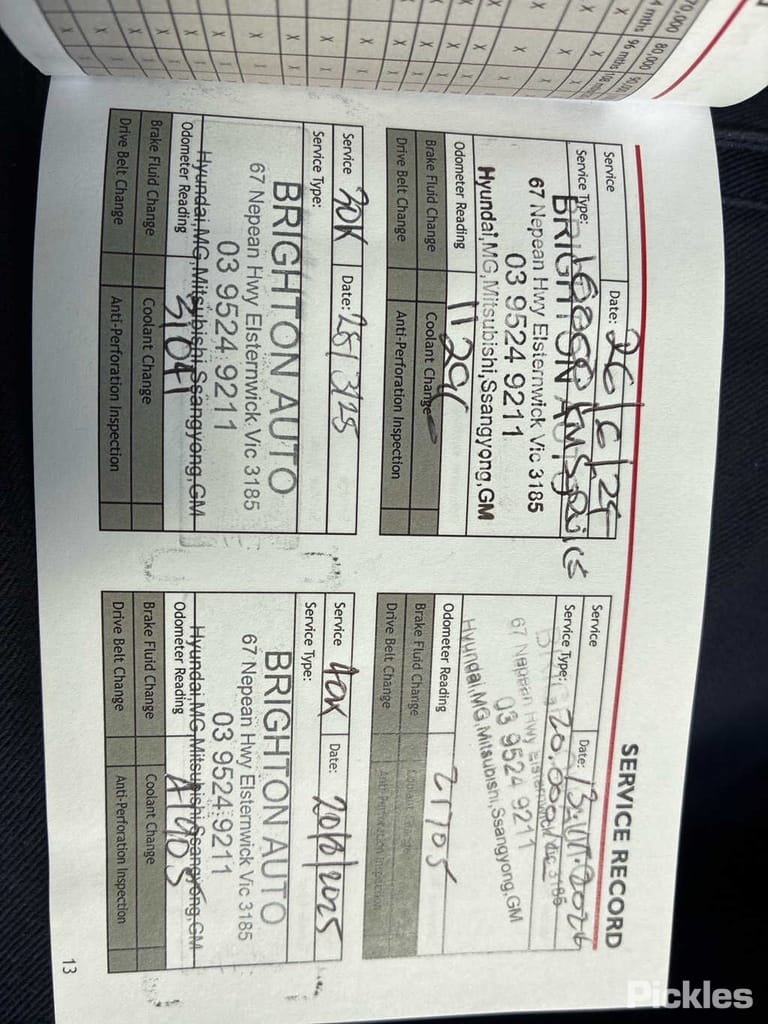 70,000 80,000
96 mths
SERVICE RECORD
Service Date: 26/6/24
Service Type: 10000 KM Service
BRIGHTON AUTO
67 Nepean Hwy Elsternwick Vic 3185
03 9524 9211
Hyundai,MG,Mitsubishi,Ssangyong,GM
Odometer Reading
Brake Fluid Change Coolant Change
Drive Belt Change Anti-Perforation Inspection
Service Date:
Service Type: 20.000
67 Nepean Hwy Elsternwick Vic 3185
03 9524 9211
Hyundai,MG,Mitsubishi,Ssangyong,GM
Odometer Reading 21705
Brake Fluid Change Coolant Change
Drive Belt Change Anti-Perforation Inspection
Service 30K Date: 28/3/25
Service Type:
BRIGHTON AUTO
67 Nepean Hwy Elsternwick Vic 3185
03 9524 9211
Hyundai,MG,Mitsubishi,Ssangyong,GM
Odometer Reading 31041
Brake Fluid Change Coolant Change
Drive Belt Change Anti-Perforation Inspection
Service 40K Date: 20/8/2025
Service Type:
BRIGHTON AUTO
67 Nepean Hwy Elsternwick Vic 3185
03 9524 9211
Hyundai,MG,Mitsubishi,Ssangyong,GM
Odometer Reading 41905
Brake Fluid Change Coolant Change
Drive Belt Change Anti-Perforation Inspection
13
Pickles